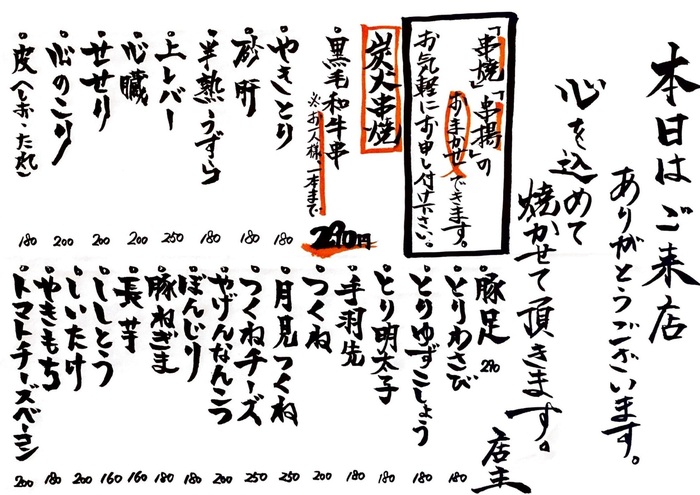 本日はご来店
ありがとうございます。
心を込めて
焼かせて頂きます。
店主
「串焼」「串揚」の
おまかせできます。
お気軽にお申し付け下さい。
炭火串焼
黒毛和牛串
※お一人様、一本まで
290円
やきとり 180
砂肝 180
半熟うずら 180
上レバー 250
心臓 200
せせり 200
心のこり 200
皮(しお・たれ) 180
豚足 290
とりわさび 180
とりゆずこしょう 180
とり明太子 180
手羽先 180
つくね 200
月見つくね 250
つくねチーズ 250
やげんなんこつ 200
ぼんじり 180
豚ねぎま 180
長芋 160
ししとう 160
しいたけ 200
やきもち 180
トマトチーズベーコン 200